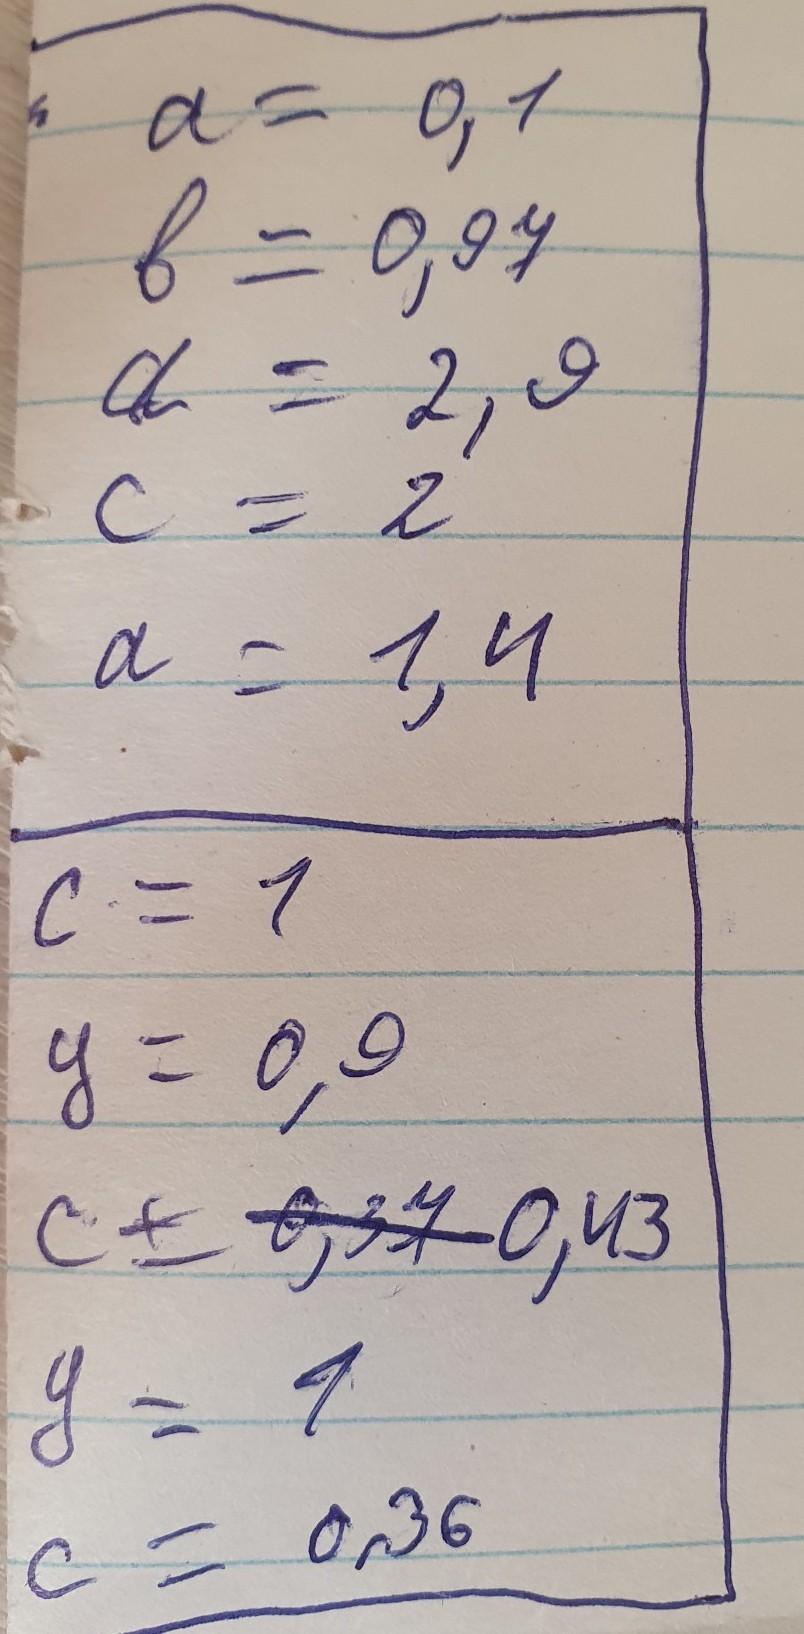 a = 0,1
b = 0,97
d = 2,9
c = 2
a = 1,4
c = 1
y = 0,9
c = 0,37 0,43
y = 1
c = 0,36